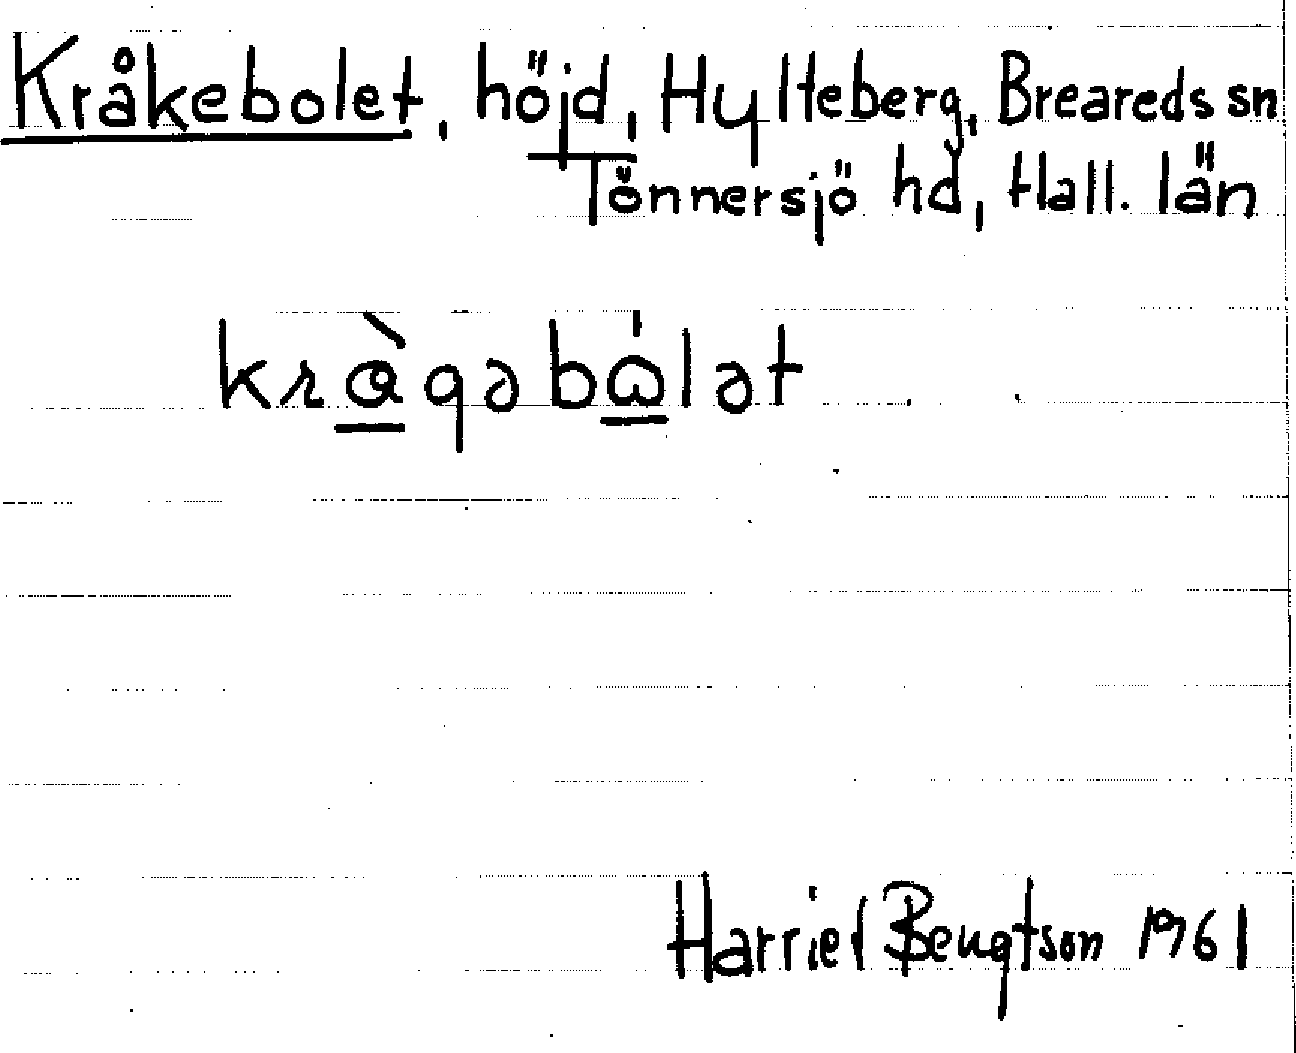 Kråkebolet, höjd, Hylteberg, Breareds sn
Tönnersjö hd, Hall. län
kràgəbɷ́lət
Harriet Bengtson 1961